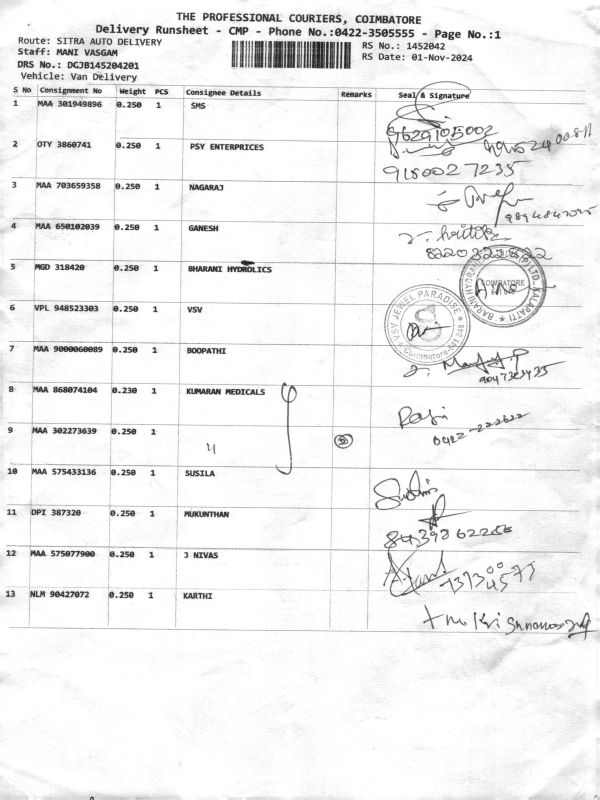 THE PROFESSIONAL COURIERS, COIMBATORE
Delivery Runsheet - CMP - Phone No.:0422-3505555 - Page No.:1
Route: SITRA AUTO DELIVERY
RS No.: 1452042
Staff: MANI VASGAM
RS Date: 01-Nov-2024
DRS No.: DGJB145204201
Vehicle: Van Delivery
S No Consignment No Weight PCS Consignee Details Remarks Seal & Signature
1 MAA 301949896 0.250 1 SMS
9629105002
2 OTY 3860741 0.250 1 PSY ENTERPRICES
9180027235
3 MAA 703659358 0.250 1 NAGARAJ
4 MAA 650102039 0.250 1 GANESH
5 MGD 318420 0.250 1 BHARANI HYDROLICS
6 VPL 948523303 0.250 1 VSV
VSV JEWEL PARADISE
S
Coimbatore-641 048
7 MAA 9000060089 0.250 1 BOOPATHI
8 MAA 868074104 0.230 1 KUMARAN MEDICALS
Raji
0422-222622
9 MAA 302273639 0.250 1 "
10 MAA 575433136 0.250 1 SUSILA
11 DPI 387320 0.250 1 MUKUNTHAN
12 MAA 575077900 0.250 1 J NIVAS
13 NLM 90427072 0.250 1 KARTHI